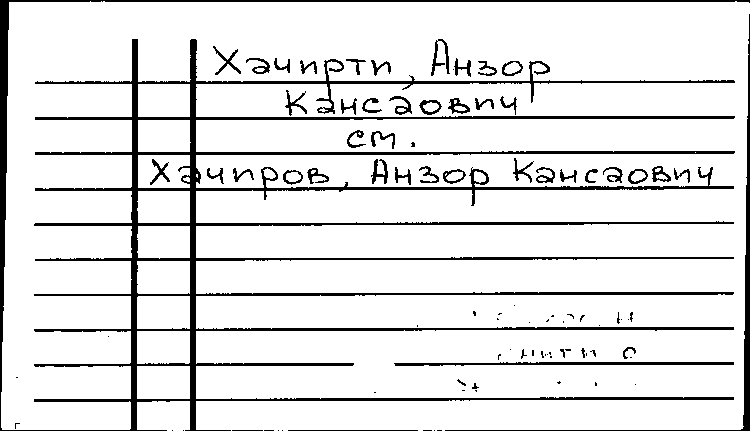 Хачирти, Анзор
Кансаович
см.
Хачиров, Анзор Кансаович